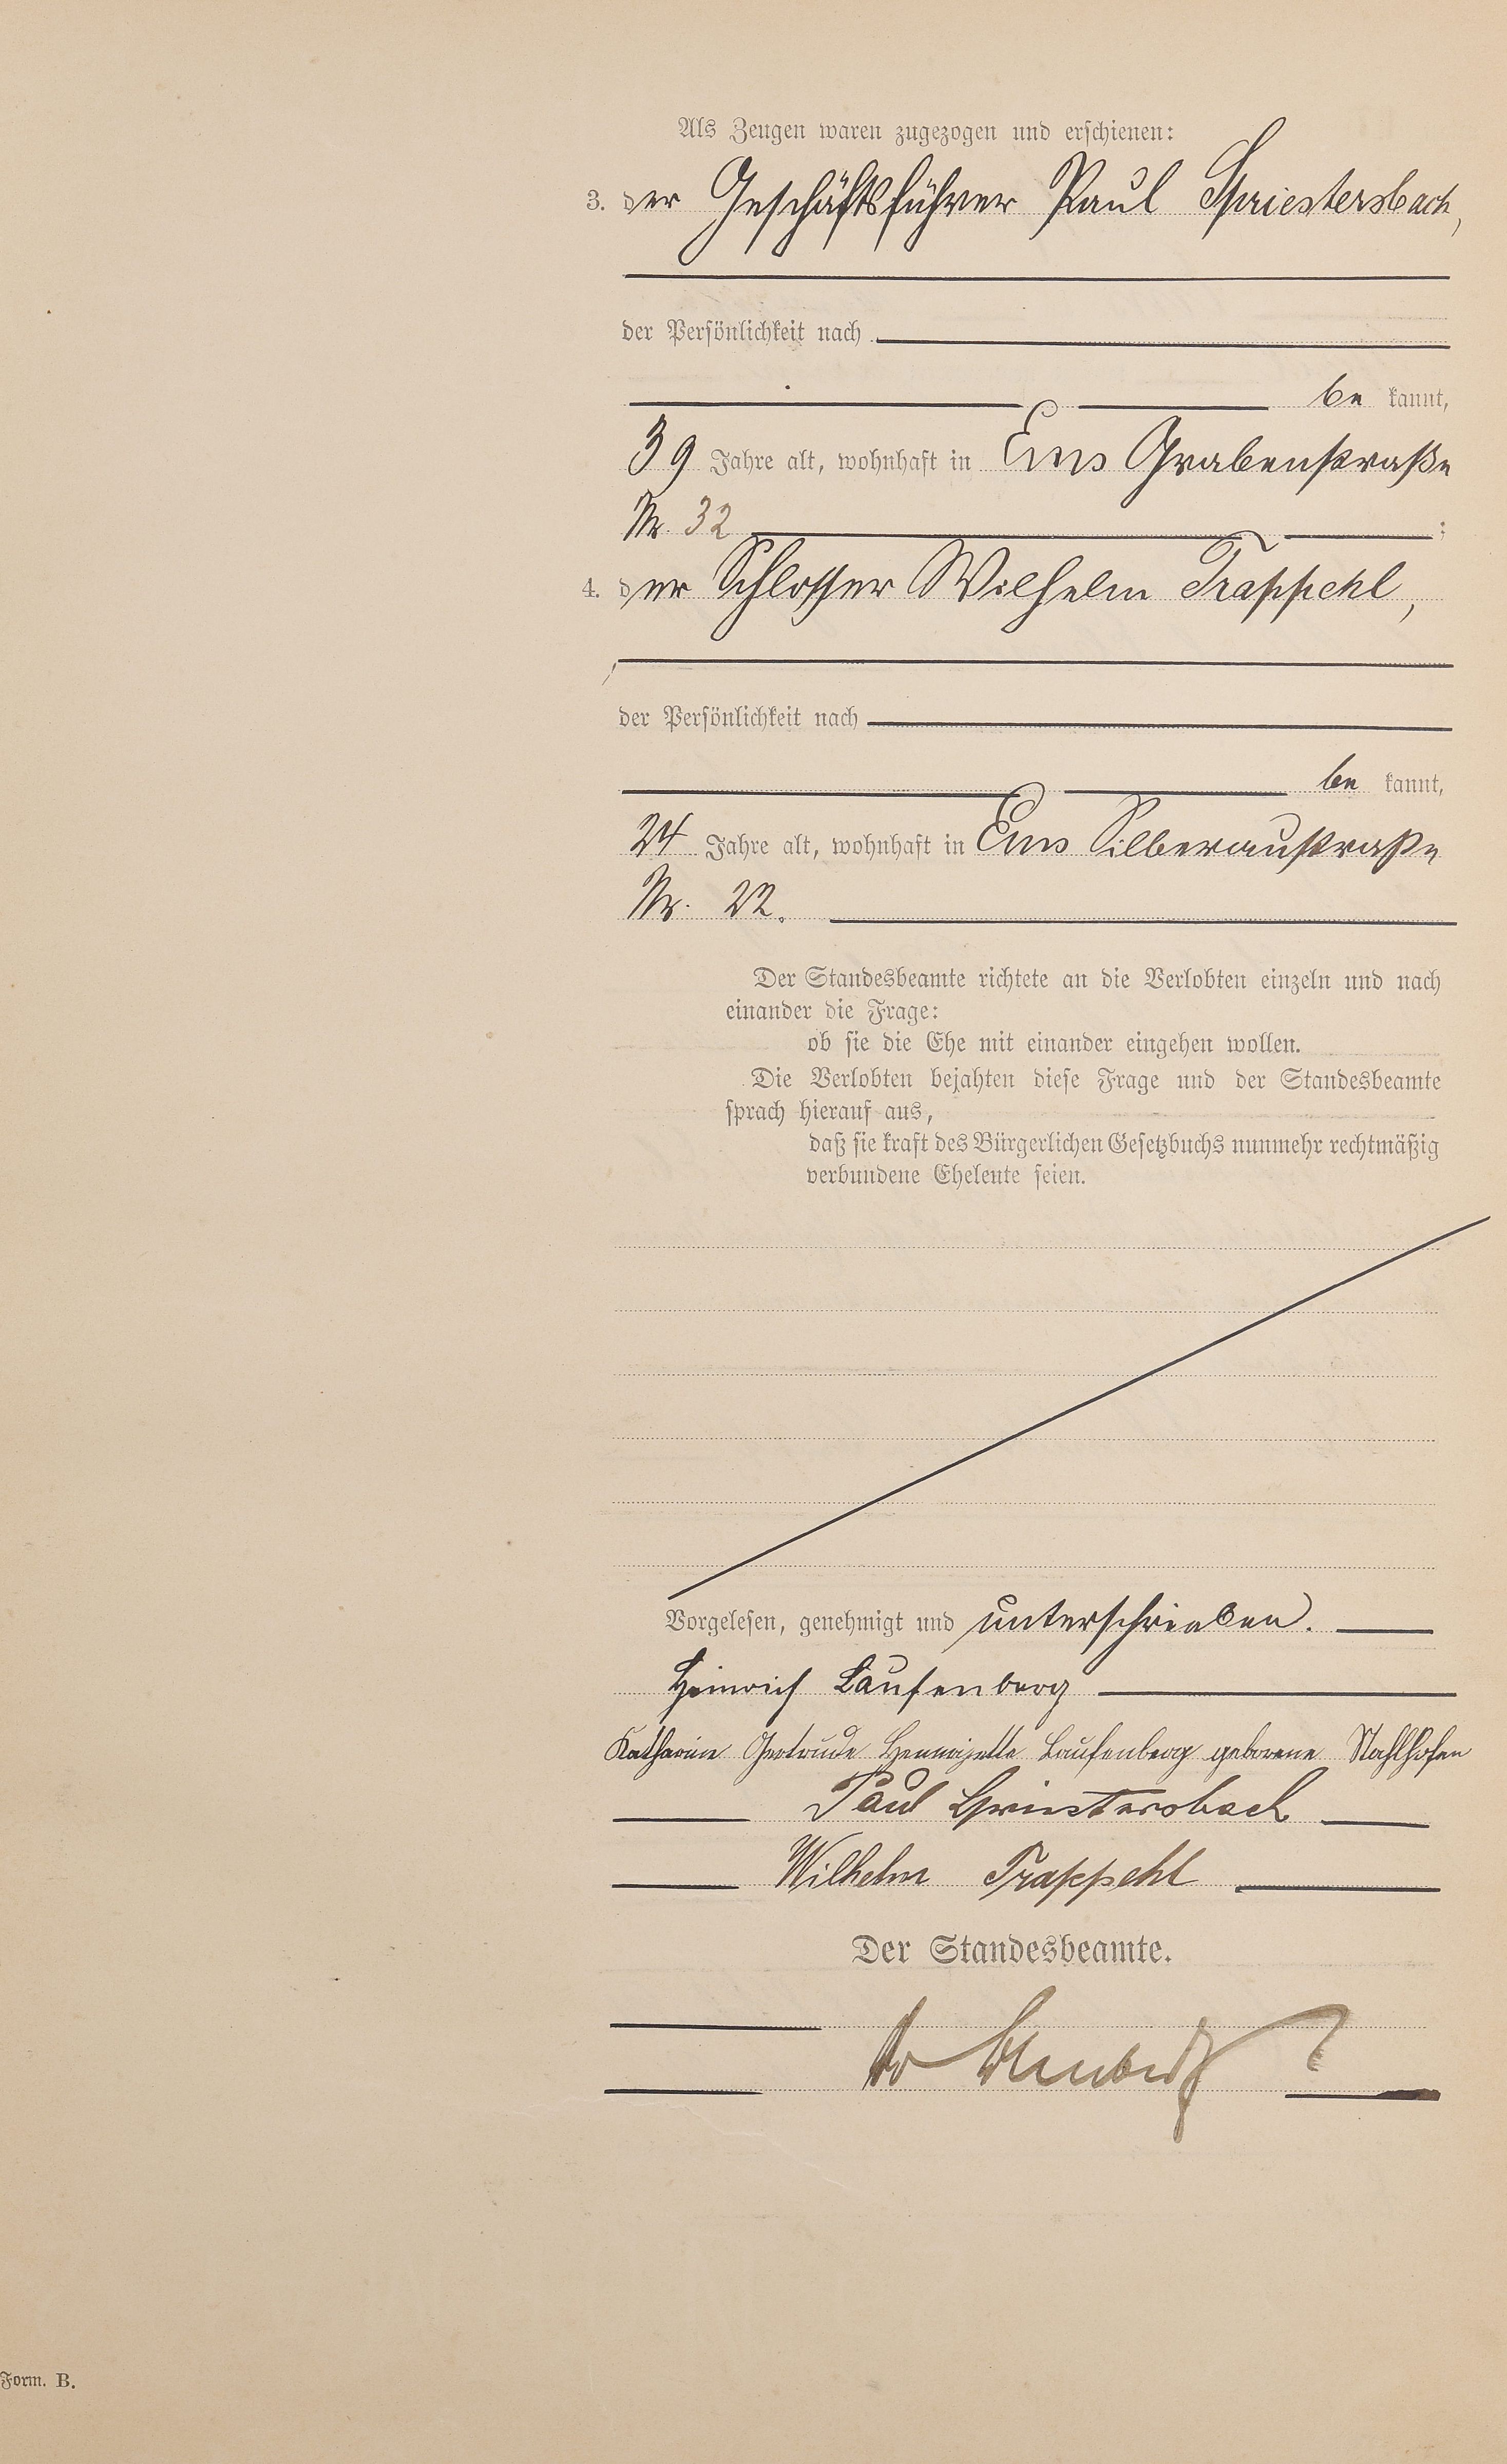 Als Zeugen waren zugezogen und erschienen:
3. der Geschäftsführer Paul Spriestersbach,
der Persönlichkeit nach
be kannt,
39 Jahre alt, wohnhaft in Ems Grabenstraße
Nr. 32 ;
4. der Schlosser Wilhelm Trappehl,
der Persönlichkeit nach
be kannt,
24 Jahre alt, wohnhaft in Ems Silberaustraße
Nr. 22.
Der Standesbeamte richtete an die Verlobten einzeln und nach
einander die Frage:
ob sie die Ehe mit einander eingehen wollen.
Die Verlobten bejahten diese Frage und der Standesbeamte
sprach hierauf aus,
daß sie kraft des Bürgerlichen Gesetzbuchs nunmehr rechtmäßig
verbundene Eheleute seien.
Vorgelesen, genehmigt und unterschrieben.
Heinrich Laufenberg
Katharine Gertrude Henrijette Laufenberg geborene Stahlhofen
Paul Spriestersbach
Wilhelm Trappehl
Der Standesbeamte.
Form. B.